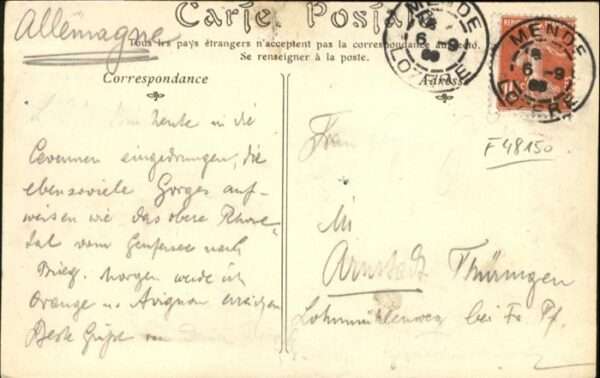 Carte Postale
Allemagne
Tous les pays étrangers n'acceptent pas la correspondance au recto.
Se renseigner à la poste.
Correspondance
Adresse
MENDE
6 - 9
09
LOZERE
MENDE
6 - 9
09
LOZERE
F 48150
heute in die
Cevennen eingedrungen, die
ebensoviele Gorges auf-
weisen wie das obere Rhone-
tal vom Genfersee nach
Brieg. Morgen werde ich
Orange u. Avignon erreichen
Beste Grüße
Frau
in
Arnstadt Thüringen
Lohmühlenweg bei Fr. Pf.